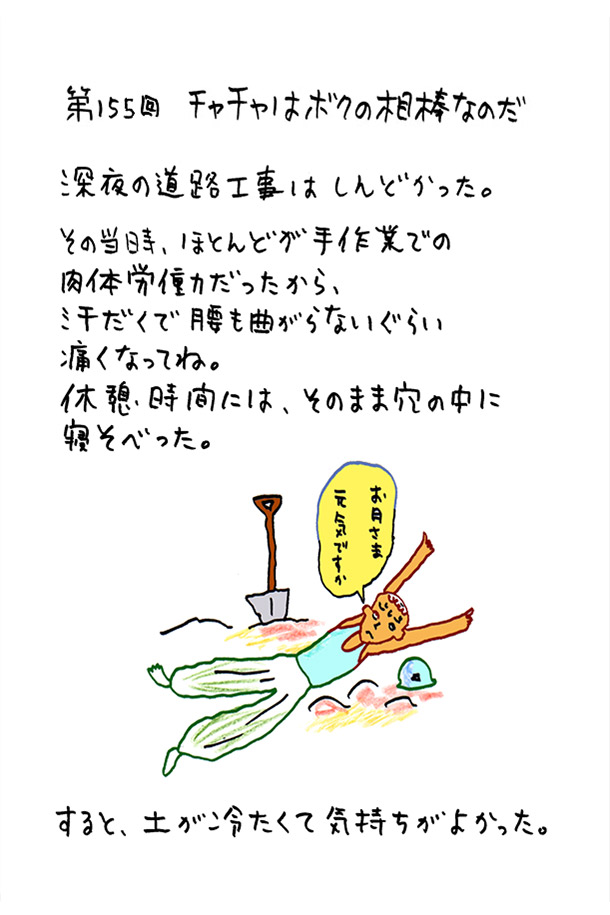 第155回 チャチャはボクの相棒なのだ
深夜の道路工事はしんどかった。
その当時、ほとんどが手作業での
肉体労働力だったから、
汗だくで腰も曲がらないぐらい
痛くなってね。
休憩時間には、そのまま穴の中に
寝そべった。
お月さま
元気ですか
すると、土が冷たくて気持ちがよかった。